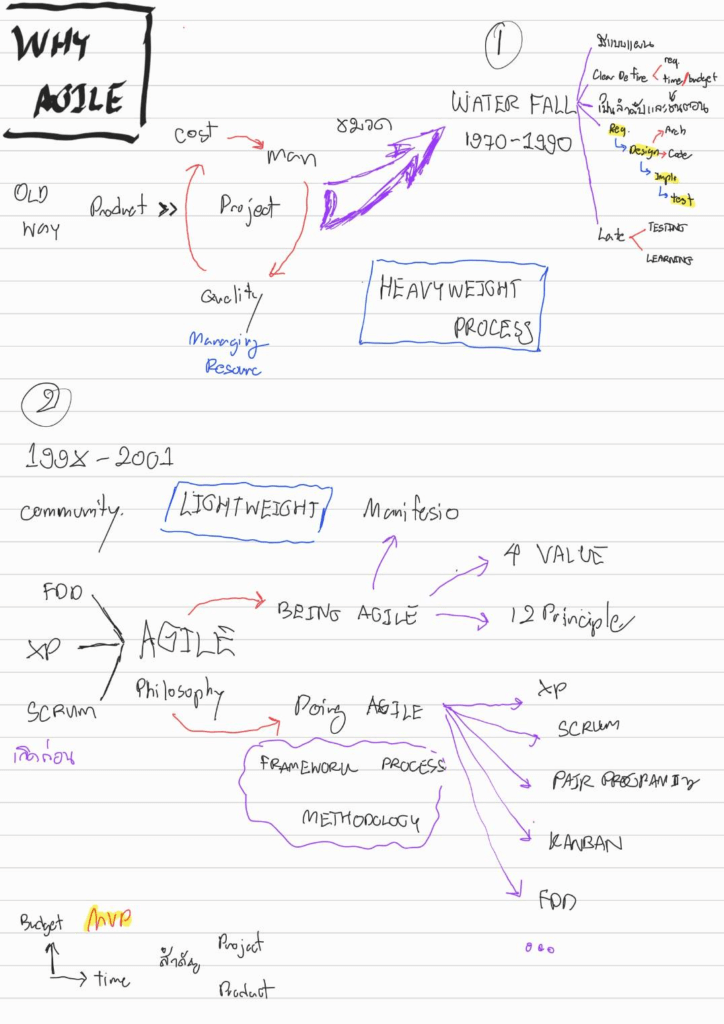 WHY
AGILE
1
WATER FALL
1970-1990
ใช้แบบแผน
Clear Define
req
time/budget
เป็นลำดับและขั้นตอน
Req.
Design
Arch
Code
Imple
test
Late
TESTING
LEARNING
OLD
Way
Product >>
Project
Cost
Man
Quality
Managing
HEAVYWEIGHT
PROCESS
2
199X-2001
Community.
LIGHTWEIGHT
Manifesio
FDD
XP
SCRUM
เกิดก่อน
AGILE
Philosophy
BEING AGILE
4 VALUE
12 Principle
Doing AGILE
FRAMEWORK PROCESS
METHODOLOGY
XP
SCRUM
KANBAN
FDD
...
Budget
MVP
time
สำคัญ
Project
Product